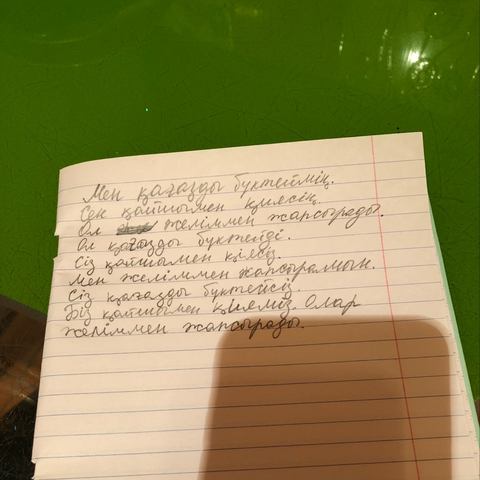 Мен қағазды бүктеймің.
Сен қайшымен қиясің.
Ол желіммен жапсырады.
Ол қағазды бүктейді.
Сіз қайшымен қиесіз.
Мен желіммен жапстрамын.
Сіз қағазды бүктейсіз.
Біз қайшымен қиеміз Олар
желіммен жапсырады.